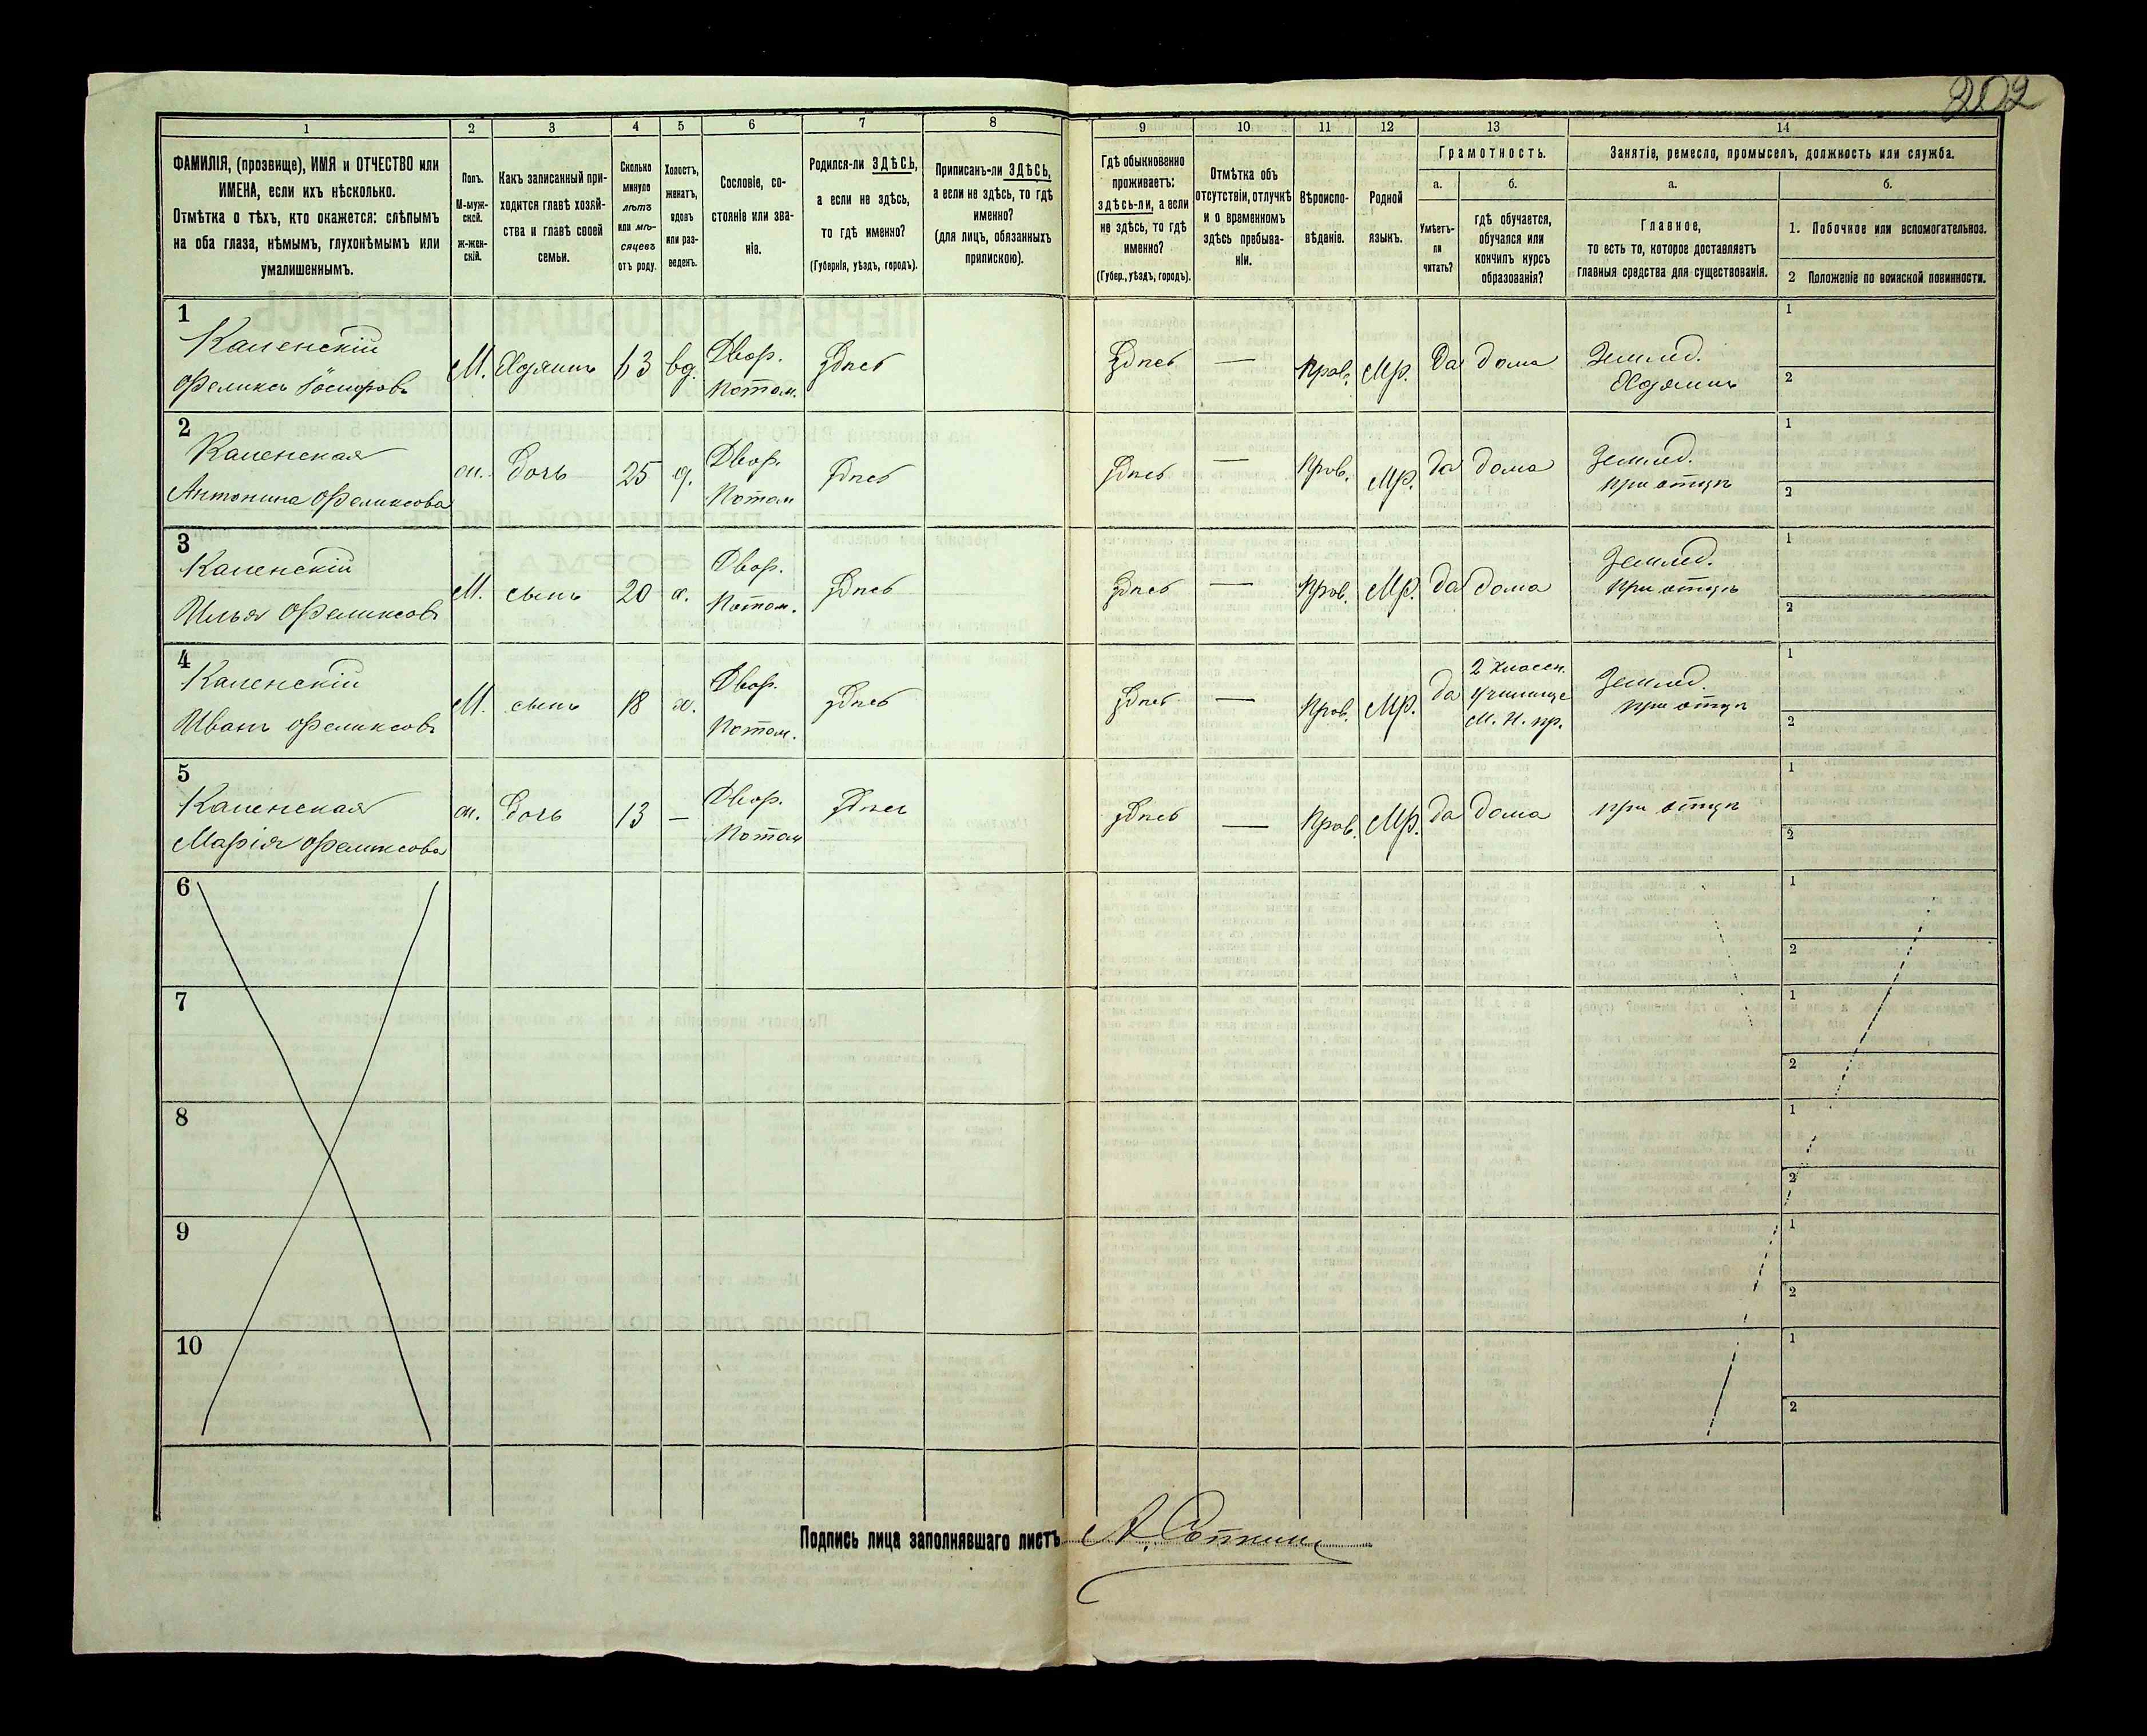 202
1
2
3
4
5
6
7
8
9
10
11
12
13
14
ФАМИЛІЯ, (прозвище), ИМЯ и ОТЧЕСТВО или
ИМЕНА, если ихъ нѣсколько.
Отмѣтка о тѣхъ, кто окажется: слѣпымъ
на оба глаза, нѣмымъ, глухонѣмымъ или
умалишеннымъ.
Полъ.
М-муж-
ской.
ж-жен-
скій.
Какъ записанный при-
ходится главѣ хозяй-
ства и главѣ своей
семьи.
Сколько
минуло
лѣтъ
или мѣ-
сяцевъ
отъ роду.
Холостъ,
женатъ,
вдовъ
или раз-
веденъ.
Сословіе, со-
стояніе или зва-
ніе.
Родился-ли ЗДѢСЬ,
а если не здѣсь,
то гдѣ именно?
(Губернія, уѣздъ, городъ).
Приписанъ-ли ЗДѢСЬ,
а если не здѣсь, то гдѣ
именно?
(для лицъ, обязанныхъ
припискою).
Гдѣ обыкновенно
проживаетъ:
здѣсь-ли, а если
не здѣсь, то гдѣ
именно?
(Губер., уѣздъ, городъ).
Отмѣтка объ
отсутствіи, отлучкѣ
и о временномъ
здѣсь пребыва-
ніи.
Вѣроиспо-
вѣданіе.
Родной
языкъ.
Грамотность.
а.
Умѣетъ-
ли
читать?
б.
гдѣ обучается,
обучался или
кончилъ курсъ
образованія?
Занятіе, ремесло, промыселъ, должность или служба.
а.
Главное,
то есть то, которое доставляетъ
главныя средства для существованія.
б.
1. Побочное или вспомогательное.
2 Положеніе по воинской повинности.
1
Каменскій
Феликсъ Іосифовъ
М.
Хозяинъ
63
вд.
Двор.
Потом.
Здѣсь
Здѣсь
—
Прав.
Мр.
Да
дома
Землед.
Хозяинъ
1
2
2
Каменская
Антонина Феликсова
ж.
дочь
25
д.
Двор.
Потом
Здѣсь
Здѣсь
—
Прав.
Мр.
да
дома
Землед.
при отцѣ
1
2
3
Каменскій
Илья Феликсовъ
М.
сынъ
20
х.
Двор.
Потом.
Здѣсь
Здѣсь
—
Прав.
Мр.
да
дома
Землед.
при отцѣ
1
2
4
Каменскій
Иванъ Феликсовъ
М.
сынъ
18
х.
Двор.
Потом.
Здѣсь
Здѣсь
—
Прав.
Мр.
да
2 классн.
училище
М. Н. пр.
Землед.
при отцѣ
1
2
5
Каменская
Марія Феликсова
ж.
дочь
13
—
Двор.
Потом
Здѣсь
Здѣсь
—
Прав.
Мр.
да
дома
при отцѣ
1
2
6
1
2
7
1
2
8
1
2
9
1
2
10
1
2
Подпись лица заполнявшаго листъ